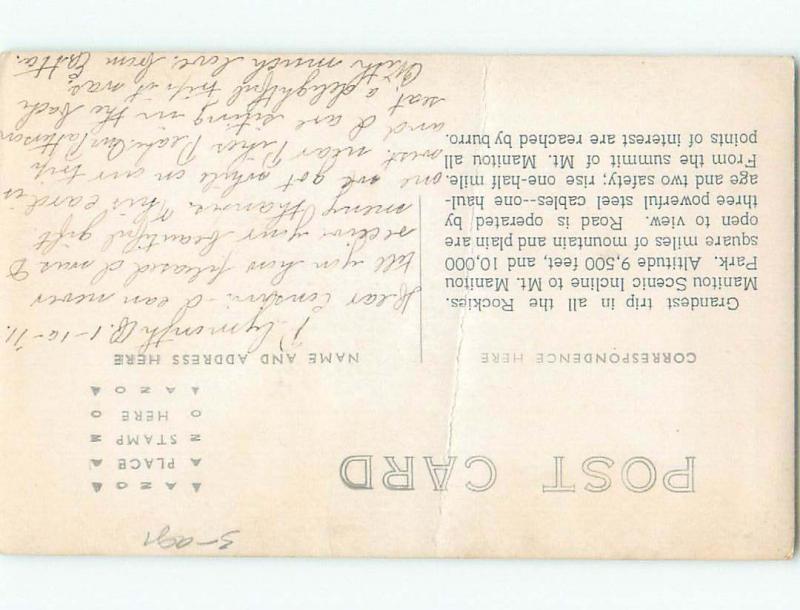 POST CARD
AZO
PLACE
STAMP
HERE
AZO
CORRESPONDENCE HERE
NAME AND ADDRESS HERE
Grandest trip in all the Rockies.
Manitou Scenic Incline to Mt. Manitou
Park. Altitude 9,500 feet, and 10,000
square miles of mountain and plain are
open to view. Road is operated by
three powerful steel cables--one haul-
age and two safety; rise one-half mile.
From the summit of Mt. Manitou all
points of interest are reached by burro.
Plymouth 1-10-11.
Dear I can never
tell you how pleased I was to
receive your beautiful gift.
many thanks. This card is
one we got while on our trip
west near Pikes Peak.
and I are siting in the back
seat, a delightful trip it was.
With much love, from Etta.